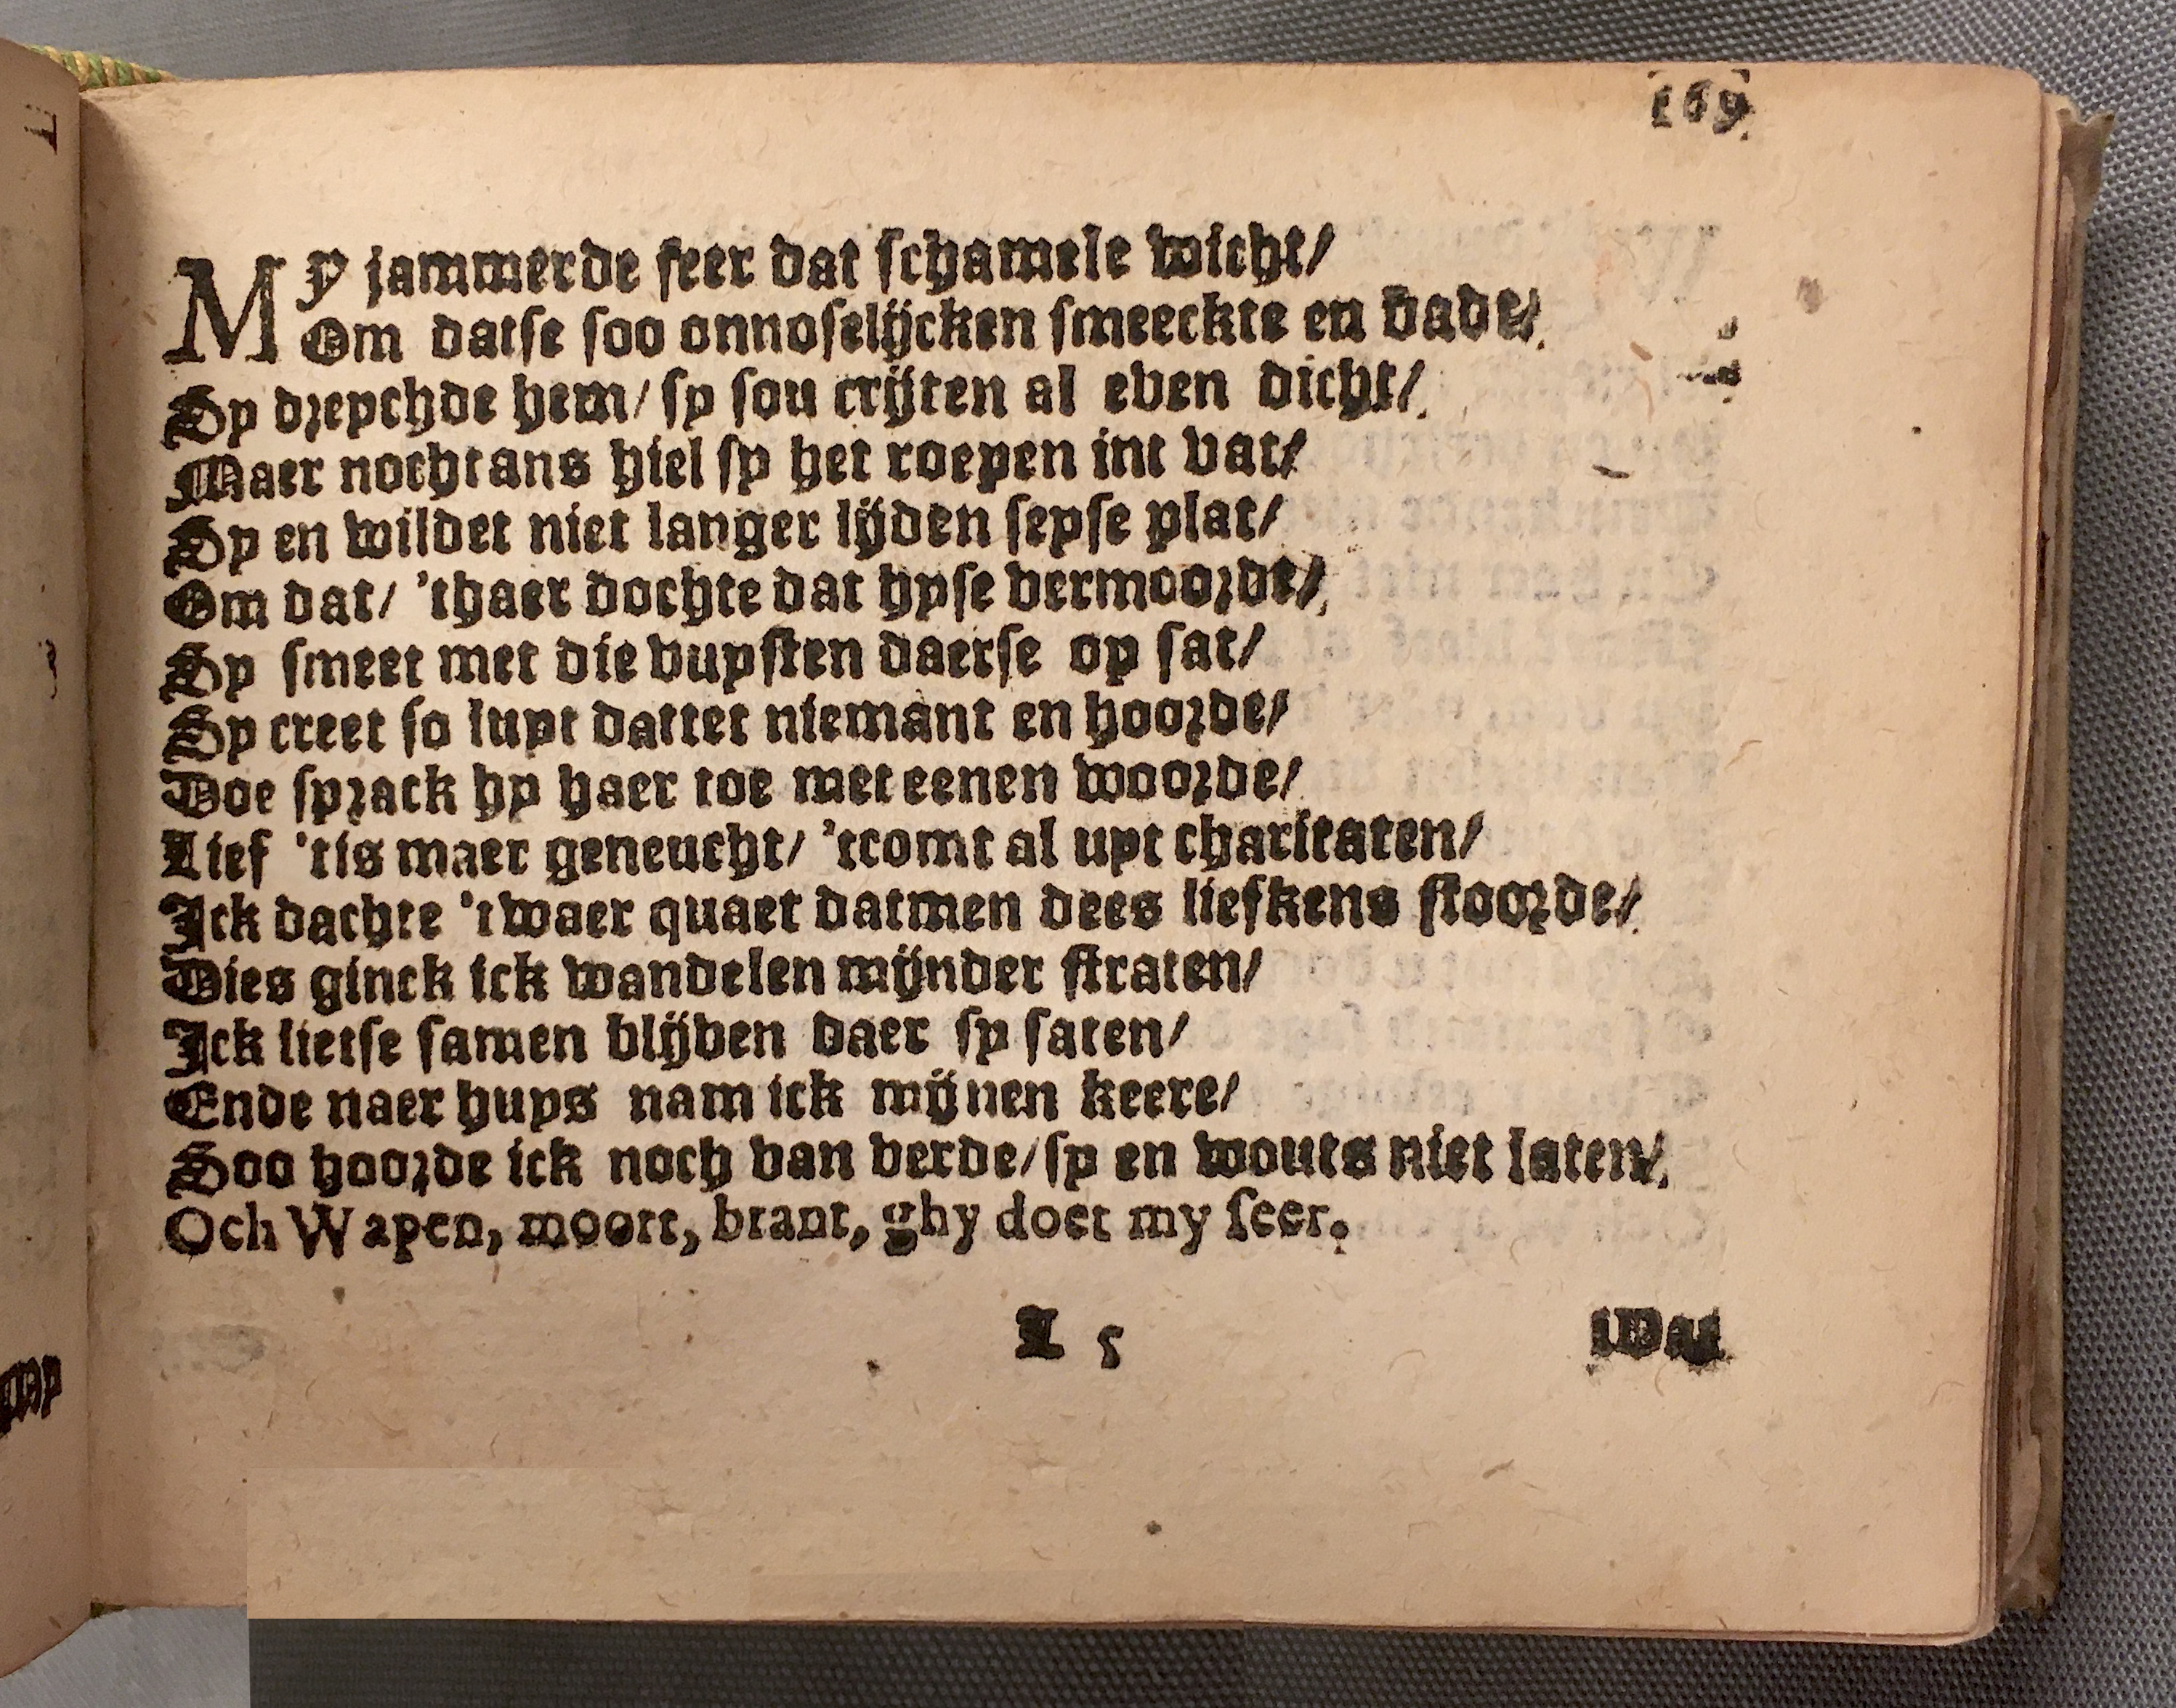 169.
My jammerde seer dat schamele wicht/
Om datse soo onnoselijcken smeeckte en bade/
Sy dreychde hem/ sy sou crijten al even dicht/
Maer nochtans hiel sy het roepen int vat/
Sy en wildet niet langer lijden seyse plat/
Om dat/ 'thaer dochte dat hyse vermoorde/
Sy smeet met die vuysten daerse op sat/
Sy creet so luyt dattet niemant en hoorde/
Doe sprack hy haer toe met eenen woorde/
Lief 'tis maer geneucht/ 'tcomt al uyt charitaten/
Ick dachte 'twaer quaet datmen dees liefkens stoorde/
Dies ginck ick wandelen mijnder straten/
Ick lietse samen blijven daer sy saten/
Ende naer huys nam ick mijnen keere/
Soo hoorde ick noch van verde/ sy en wouts niet laten/
Och Wapen, moort, brant, ghy doet my seer.
L 5
Wat